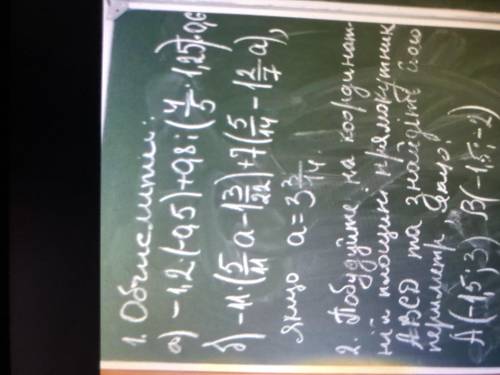 1. Обчислити:
а) -1,2·(-0,5)+0,8:(4/5·1,25)·0,6
б) -11·(5/11 a - 1 3/22)+7(5/14 - 1 2/7 a),
якщо a = 3 3/14
2. Побудуйте на координат-
ній площині прямокутник
ABCD та знайдіть його
периметр якщо:
A(-1,5; 3) B(-1,5; -2)